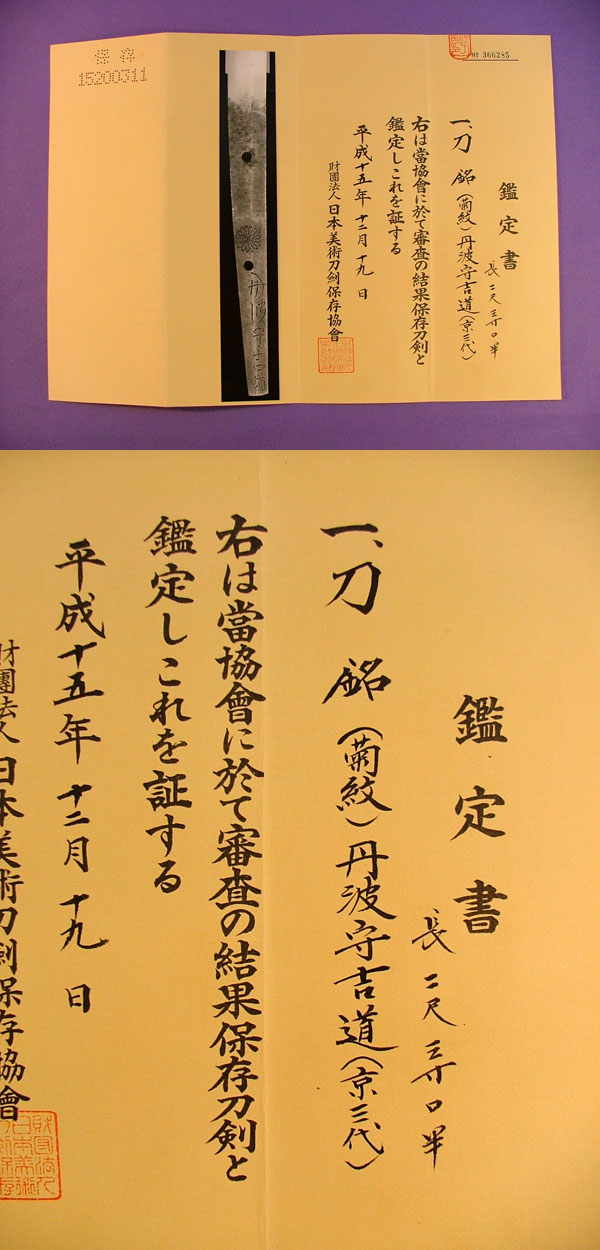 保存
15200311
№ 366285
鑑定書
一、刀 銘(菊紋)丹波守吉道(京三代)
長二尺三寸口半
右は當協會に於て審査の結果保存刀剣と
鑑定しこれを証する
平成十五年十二月十九日
財團法人日本美術刀剣保存協會
丹波守吉道
鑑定書
一、刀 銘(菊紋)丹波守吉道(京三代)
長二尺三寸口半
右は當協會に於て審査の結果保存刀剣と
鑑定しこれを証する
平成十五年十二月十九日
財團法人日本美術刀剣保存協會